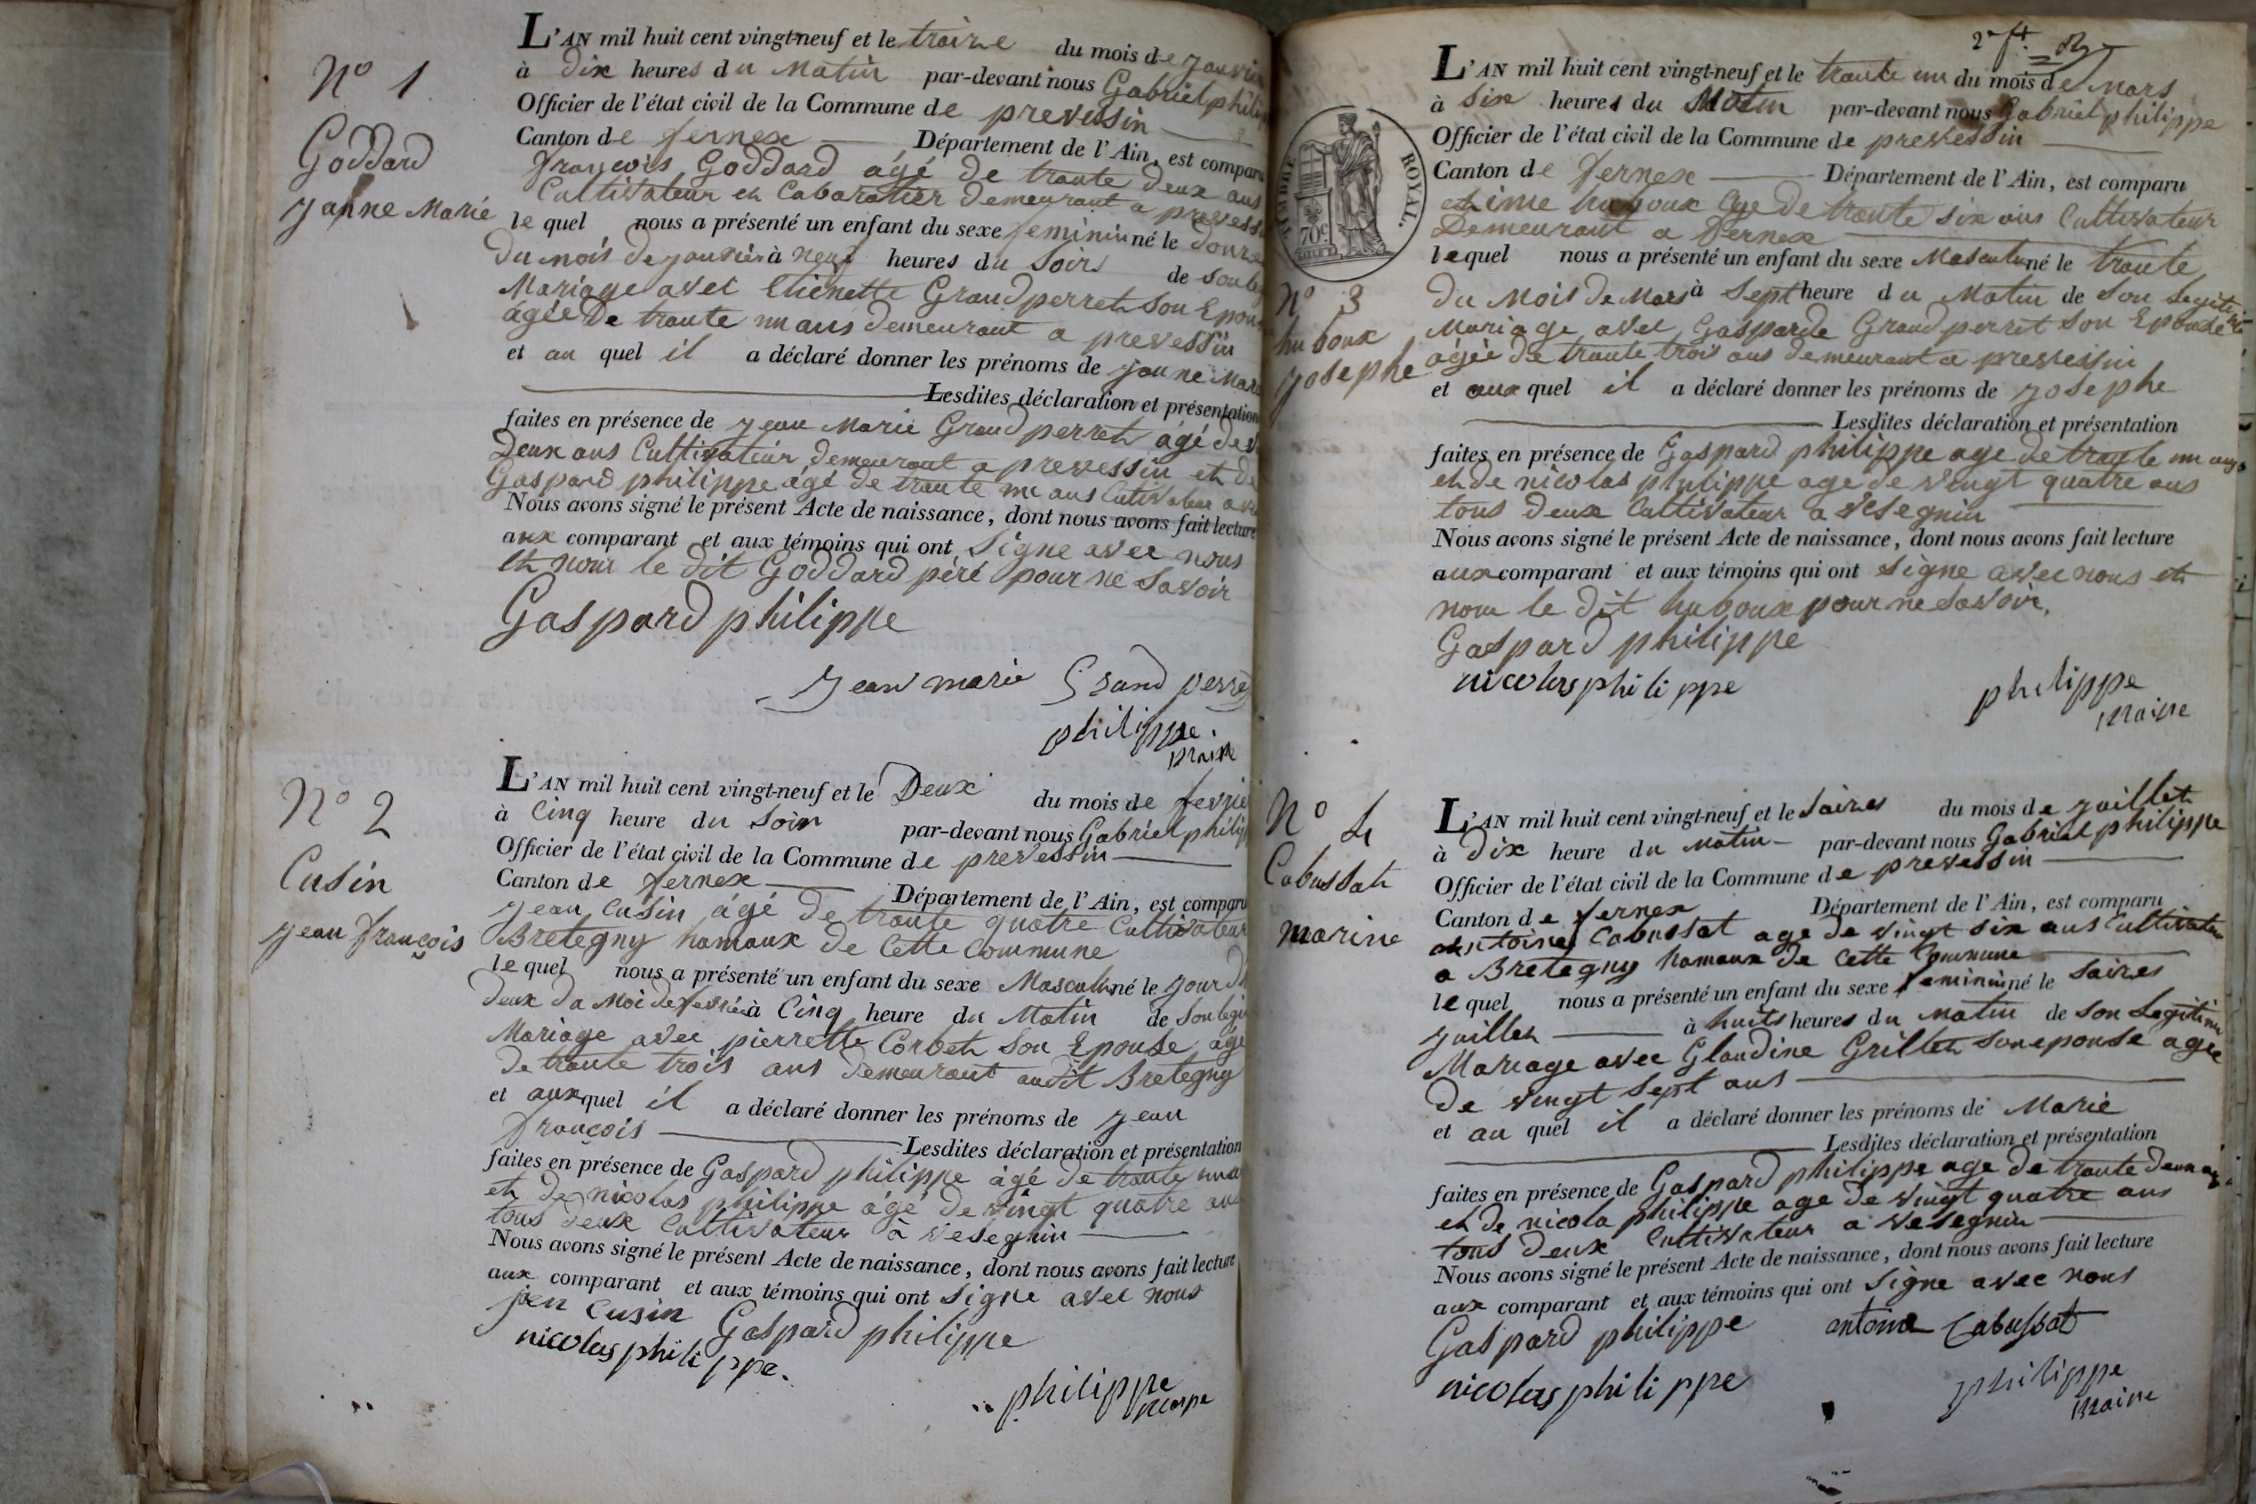 N° 1
Goddard
Janne Marie
L'AN mil huit cent vingt-neuf et le traize du mois de janvie
à dix heures du Matin par-devant nous Gabriel philip
Officier de l'état civil de la Commune de prevessin
Canton de fernex Département de l'Ain, est comparu
françois Goddard âgé de trante deux ans
Cultivateur et Cabaratier demeurant a prevessi
le quel nous a présenté un enfant du sexe feminin né le douze
du mois de janvier à neuf heures du Soir de son leg
Mariage avet Etienette Grandperret son Epou
âgée de trante un ans demeurant a prevessin
et au quel il a déclaré donner les prénoms de janne Mari
Lesdites déclaration et présentation
faites en présence de jean Marie Grandperret âgé de
Deux ans Cultivateur demeurant a prevessin et de
Gaspard philippe âgé de trante un ans Cutivateur a ve
Nous avons signé le présent Acte de naissance, dont nous avons fait lecture
aux comparant et aux témoins qui ont Signe avec nous
et non le dit Goddard péré pour ne Savoir
Gaspard philippe
jean marie Grand perret
philippe
maire
N° 2
Cusin
jean françois
L'AN mil huit cent vingt-neuf et le Deux du mois de fevrie
à Cinq heure du Soir par-devant nous Gabriel philip
Officier de l'état civil de la Commune de prevessin
Canton de fernex Département de l'Ain, est comparu
jean Cusin âgé de trante quatre Cultivateur
Bretegny hamaux de Cette Commune
le quel nous a présenté un enfant du sexe Masculin né le jour d
deux du Moi de fevrié à Cinq heure du Matin de Son legi
Mariage avec pierrette Corbet Son Epouse âgé
De trante trois ans demeurant audit Bretegny
et aux quel il a déclaré donner les prénoms de jean
françois Lesdites déclaration et présentation
faites en présence de Gaspard philippe âgé de trante un a
et de nicolas philippe âgé de vingt quatre an
tous deux Cultivateur à vesegnin
Nous avons signé le présent Acte de naissance, dont nous avons fait lecture
aux comparant et aux témoins qui ont Signe avec nous
jen cusin Gaspard philippe
nicolas philippe.
philippe
maire
2e ft.
ROYAL.
70c
N° 3
huboux
josephe
L'AN mil huit cent vingt-neuf et le trante un du mois de Mars
à Six heures du Matin par-devant nous Gabriel philippe
Officier de l'état civil de la Commune de prevessin
Canton de fernex Département de l'Ain, est comparu
huboux age de trante six ans Cultivateur
Demeurant a fernex
le quel nous a présenté un enfant du sexe Masculin né le trante
du Mois de Mars à Sept heure du Matin de Son Legitime
Mariage avec Gasparde Grandperret son Epouse
âgée de trante trois ans demeurant a prevessin
et aux quel il a déclaré donner les prénoms de josephe
Lesdites déclaration et présentation
faites en présence de Gaspard philippe age de trante un ans
et de nicolas philippe age de vingt quatre ans
tous deux Cultivateur a vesegnin
Nous avons signé le présent Acte de naissance, dont nous avons fait lecture
aux comparant et aux témoins qui ont Signe avec nous et
non le dit huboux pour ne Savoir,
Gaspard philippe
nicolas philippe
philippe
maire
N° 4
Cabussat
marine
L'AN mil huit cent vingt-neuf et le Saizes du mois de juillet
à dix heure du Matin par-devant nous Gabriel philippe
Officier de l'état civil de la Commune de prevessin
Canton de fernex Département de l'Ain, est comparu
antoine Cabussat age de vingt six ans Cultivateur
a Bretegny hamaux de Cette Commune
le quel nous a présenté un enfant du sexe feminin né le Saizes
juillet à huits heures du Matin de Son Legitime
Mariage avec Glaudine Grillet Son epouse agée
de vingt Sept ans
et au quel il a déclaré donner les prénoms de Marie
Lesdites déclaration et présentation
faites en présence de Gaspard philippe age de trante deux ans
et de nicola philippe age de vingt quatre ans
tous deux Cultivateur a vesegnin
Nous avons signé le présent Acte de naissance, dont nous avons fait lecture
aux comparant et aux témoins qui ont Signe avec nous
Gaspard philippe antoine Cabussat
nicolas philippe
philippe
maire